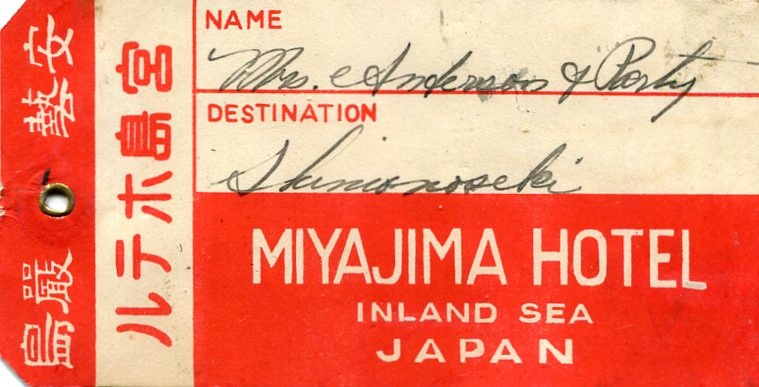 安藝 嚴島
宮島ホテル
NAME
Mrs. Anderson & Party
DESTINATION
Shimonoseki
MIYAJIMA HOTEL
INLAND SEA
JAPAN